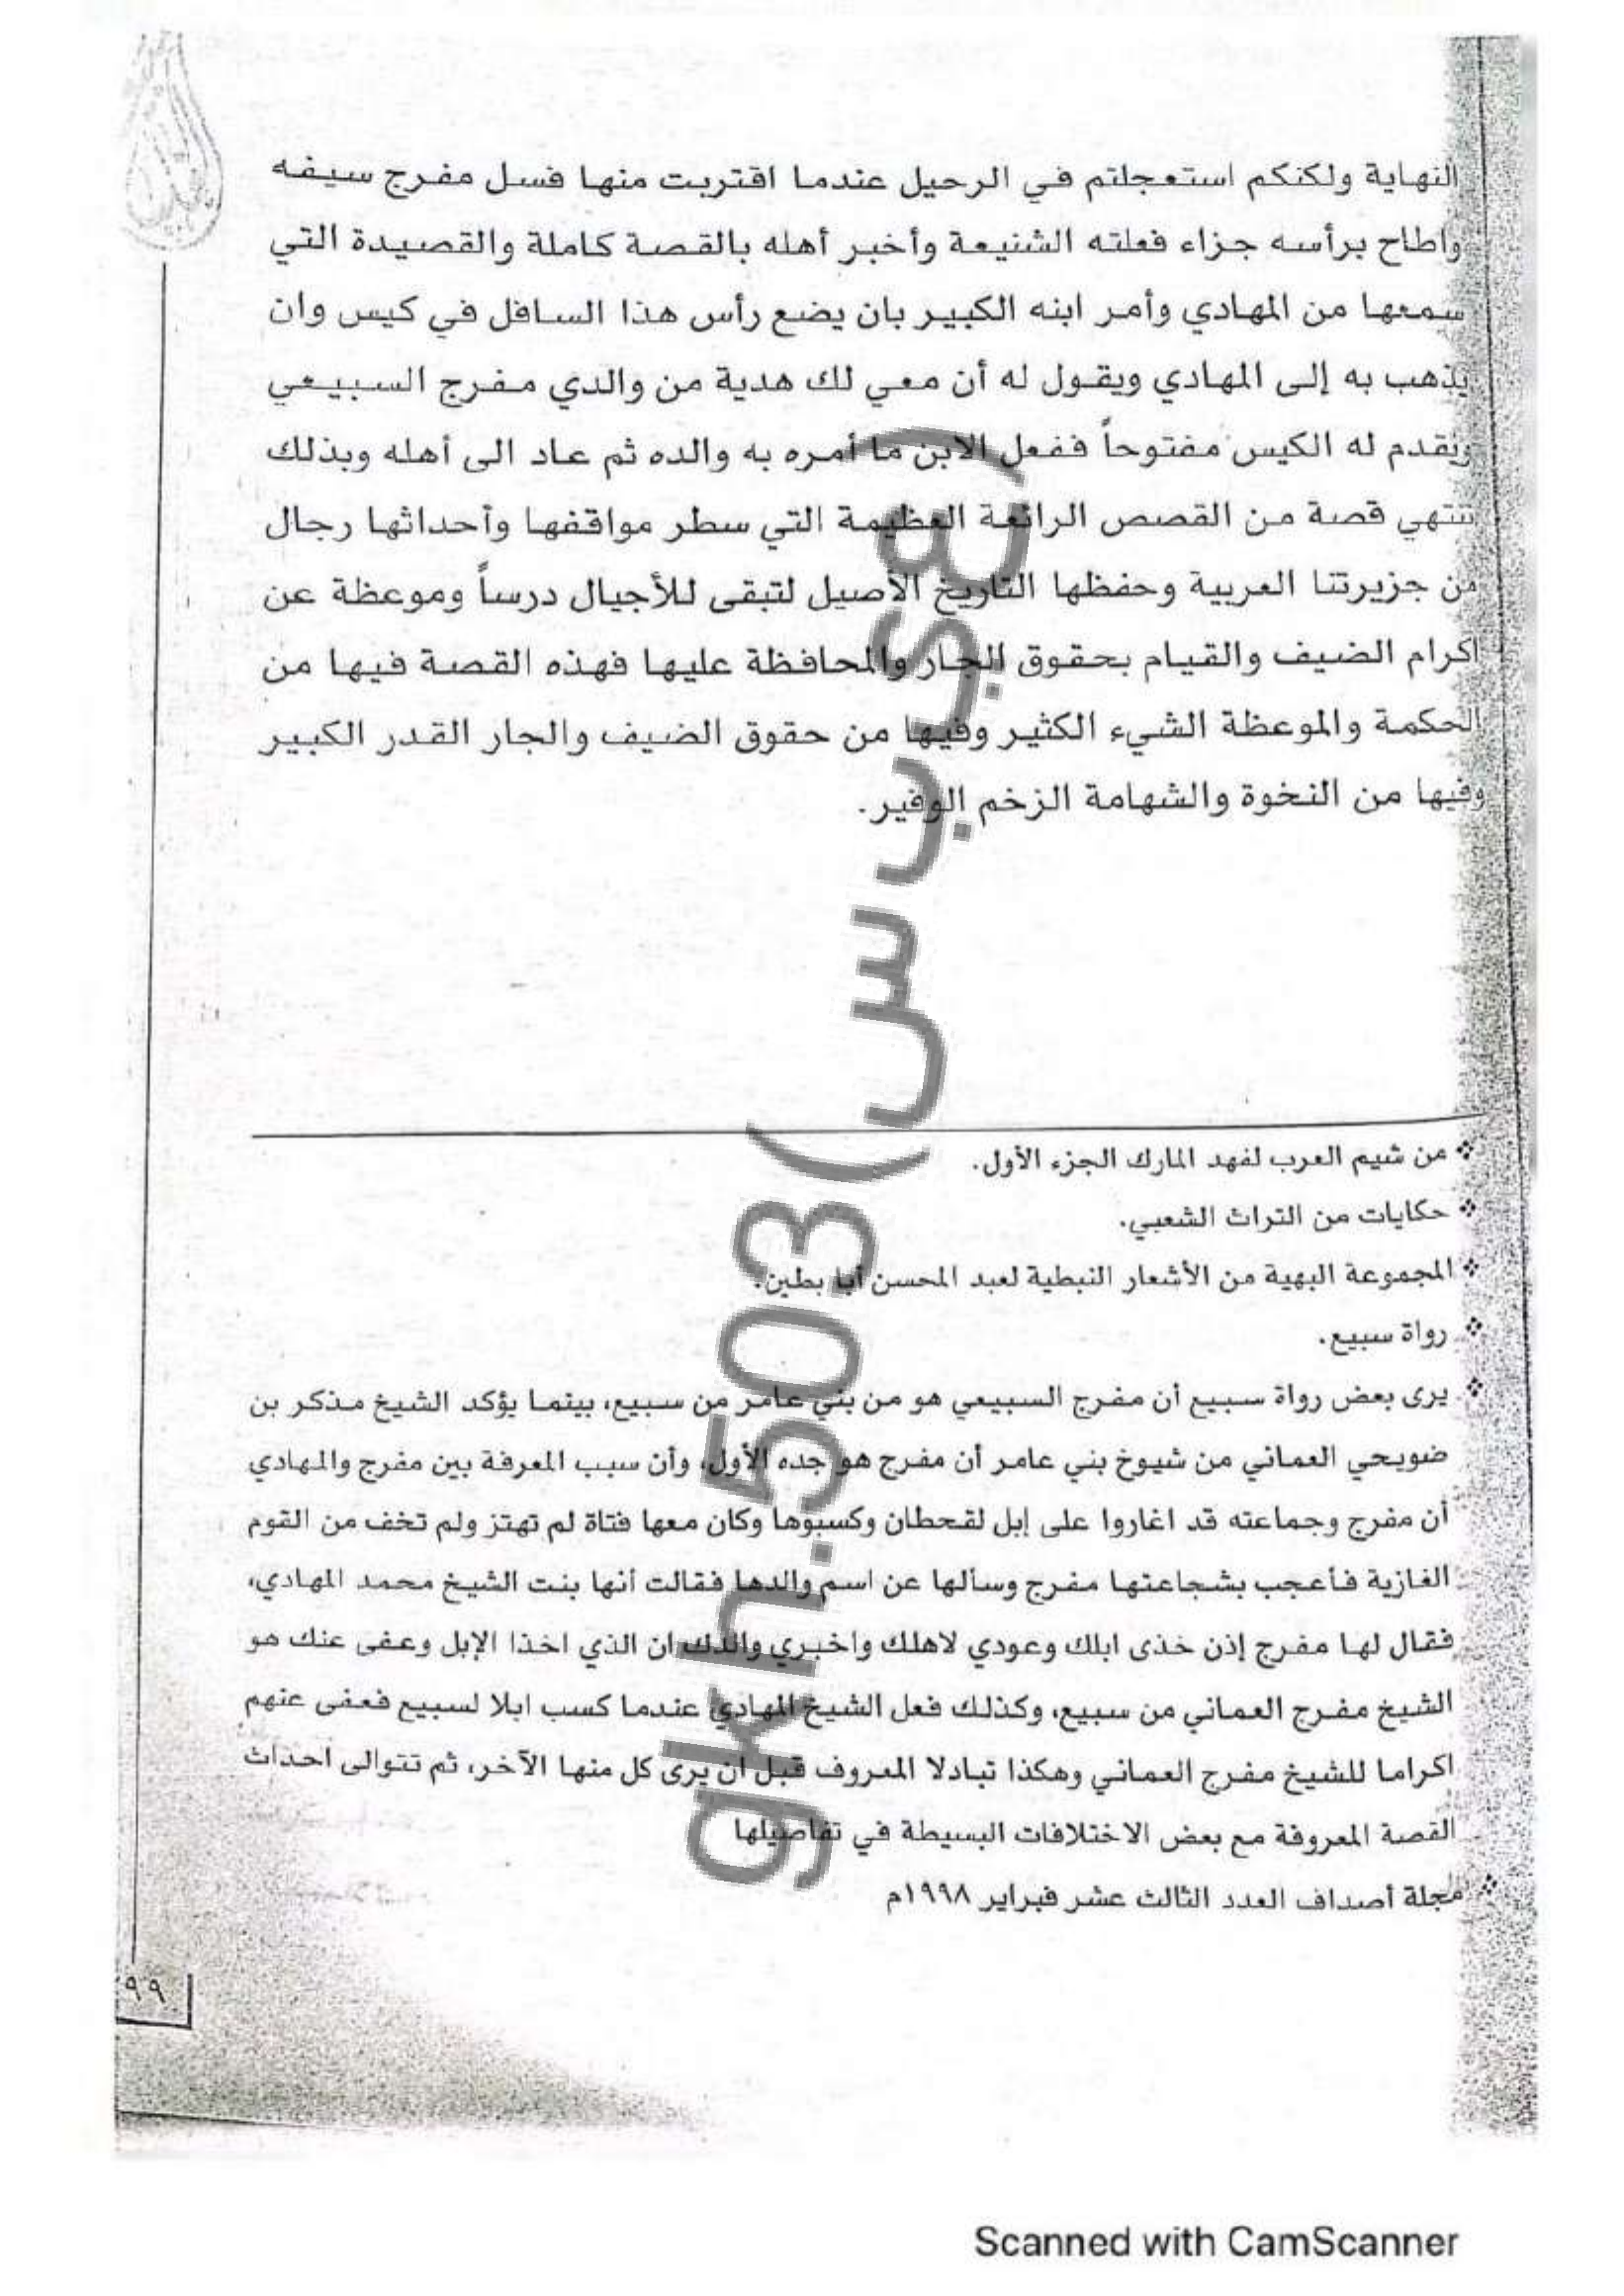 النهاية ولكنكم استعجلتم في الرحيل عندما اقتربت منها فسل مفرج سيفه
واطاح برأسه جزاء فعلته الشنيعة وأخبر أهله بالقصة كاملة والقصيدة التي
سمعها من المهادي وأمر ابنه الكبير بان يضع رأس هذا السافل في كيس وان
يذهب به إلى المهادي ويقول له أن معي لك هدية من والدي مفرج السبيعي
ويقدم له الكيس مفتوحاً ففعل الابن ما أمره به والده ثم عاد الى أهله وبذلك
تنتهي قصة من القصص الرائعة العظيمة التي سطر مواقفها وأحداثها رجال
من جزيرتنا العربية وحفظها التاريخ الأصيل لتبقى للأجيال درساً وموعظة عن
اكرام الضيف والقيام بحقوق الجار والمحافظة عليها فهذه القصة فيها من
الحكمة والموعظة الشيء الكثير وفيها من حقوق الضيف والجار القدر الكبير
وفيها من النخوة والشهامة الزخم الوفير.
❖ من شيم العرب لفهد المارك الجزء الأول.
❖ حكايات من التراث الشعبي.
❖ المجموعة البهية من الأشعار النبطية لعبد المحسن أبا بطين.
❖ رواة سبيع.
❖ يرى بعض رواة سبيع أن مفرج السبيعي هو من بني عامر من سبيع، بينما يؤكد الشيخ مذكر بن
ضويحي العماني من شيوخ بني عامر أن مفرج هو جده الأول، وأن سبب المعرفة بين مفرج والمهادي
أن مفرج وجماعته قد اغاروا على إبل لقحطان وكسبوها وكان معها فتاة لم تهتز ولم تخف من القوم
الغازية فأعجب بشجاعتها مفرج وسألها عن اسم والدها فقالت أنها بنت الشيخ محمد المهادي،
فقال لها مفرج إذن خذى ابلك وعودي لاهلك واخبري والدك ان الذي اخذا الإبل وعفى عنك هو
الشيخ مفرج العماني من سبيع، وكذلك فعل الشيخ المهادي عندما كسب ابلا لسبيع فعفى عنهم
اكراما للشيخ مفرج العماني وهكذا تبادلا المعروف قبل ان يرى كل منها الآخر، ثم تتوالى احداث
القصة المعروفة مع بعض الاختلافات البسيطة في تفاصيلها
❖ مجلة أصداف العدد الثالث عشر فبراير ١٩٩٨م
٩٩
gkh.503(س
Scanned with CamScanner